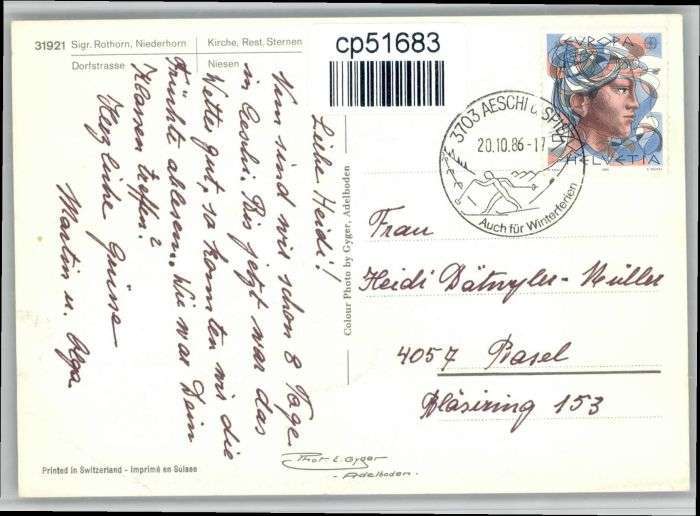 31921 Sigr. Rothorn, Niederhorn
Dorfstrasse
Kirche, Rest. Sternen
Niesen
cp51683
EUROPA
HELVETIA
3703 AESCHI b. SPIEZ
20.10.86-17
Auch für Winterferien
Liebe Heidi!
Nun sind wir schon 8 Tage
in Aeschi. Bis jetzt war das
Wetter gut, so konnten wir die
Früchte ablesen. Wie war Dein
Klassentreffen?
Herzliche Grüsse
Martin u. Olga
Colour Photo by Gyger, Adelboden
Frau
Heidi Dätwyler-Müller
4057 Basel
Bläsiring 153
Phot E. Gyger
- Adelboden -
Printed in Switzerland - Imprimé en Suisse